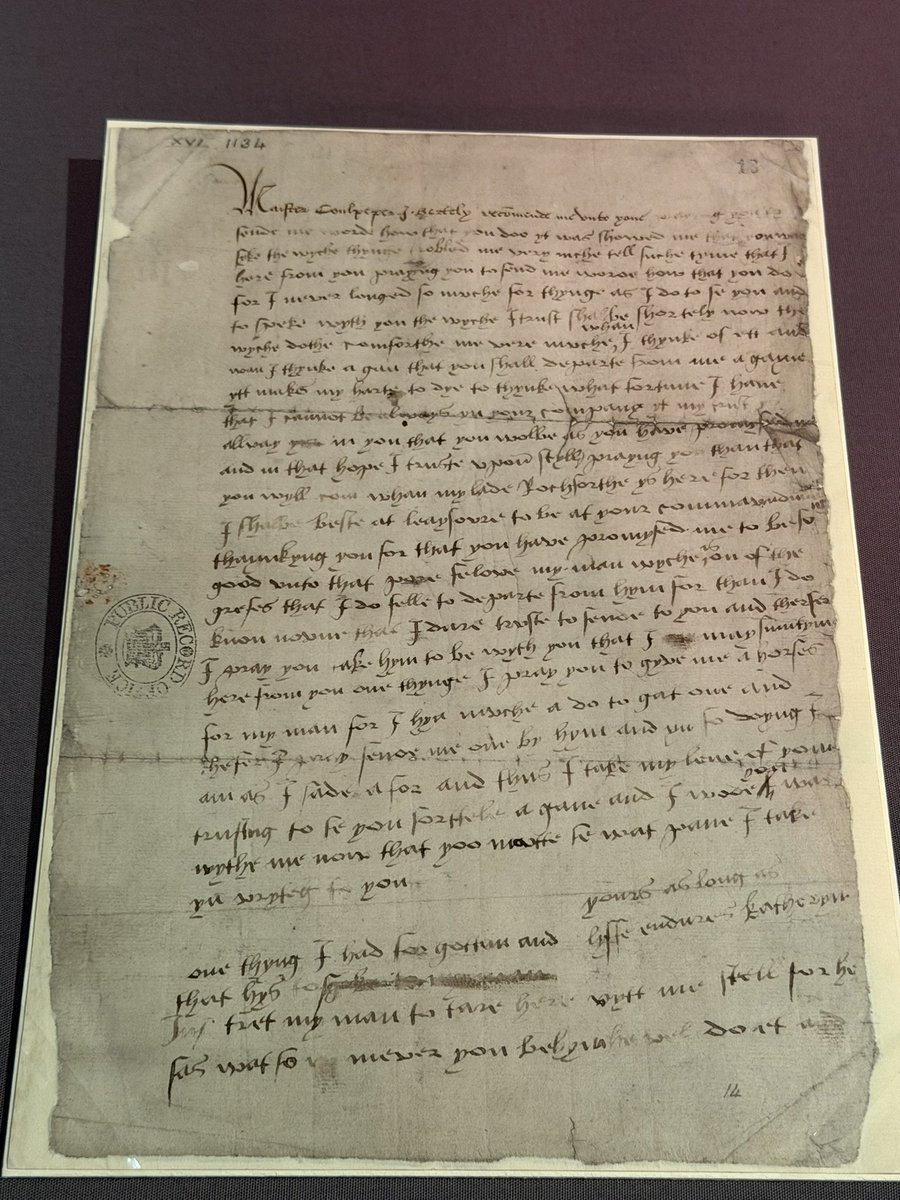 XVI 1134
13
Maister Coulpeper I hertely recomende me unto youe praying you to
sende me worde how that you doo yt was showed me that you was
seke the wyche thynge trobled me very muche tell suche tyme that I
here from you praying you to send me worde how that you do
for I never longed so muche for thynge as I do to se you and
to speke wyth you the wyche I trust shalbe shortely now the
wyche dothe comforthe me verie muche whan I thynke of ett and
wan I thynke agan that you shall departe from me agane
ytt makes my harte to dye to thynke what fortune I have
that I cannot be always yn your company yt my trust ys
allway in you that you wolbe as you have promysed me
and in that hope I truste upon styll prayng you than that
you wyll com whan my lade Rochforthe ys here for then
I shalbe beste at leaysoure to be at your commawndmant
thaynkyng you for that you have promysed me to be so
good unto that pore felowe my man wyche ys on of the
grefes that I do felle to departe from hym for than I do
know noone that I dare truste to sende to you and therfor
I pray you take hym to be wyth you that I may sumtym
here from you one thynge I pray you to gyve me a horse
for my man for I hyd muche a do to gat one and
therfer I pray sende me one by hym and yn so doyng I
am as I sade afor and thus I take my leve of youe
trusting to se you shorttele agane and I wode you was
wythe me now that yoo moutte se wat pane I take
yn wryteg to you
yours as long as
lyffe endures Katheryn
one thyng I had forgotten and
that hys to
Ins tret my man to tare here wytt me stell for he
sas wat so mever you bed hym he wel do et and
14
PUBLIC RECORD OFFICE